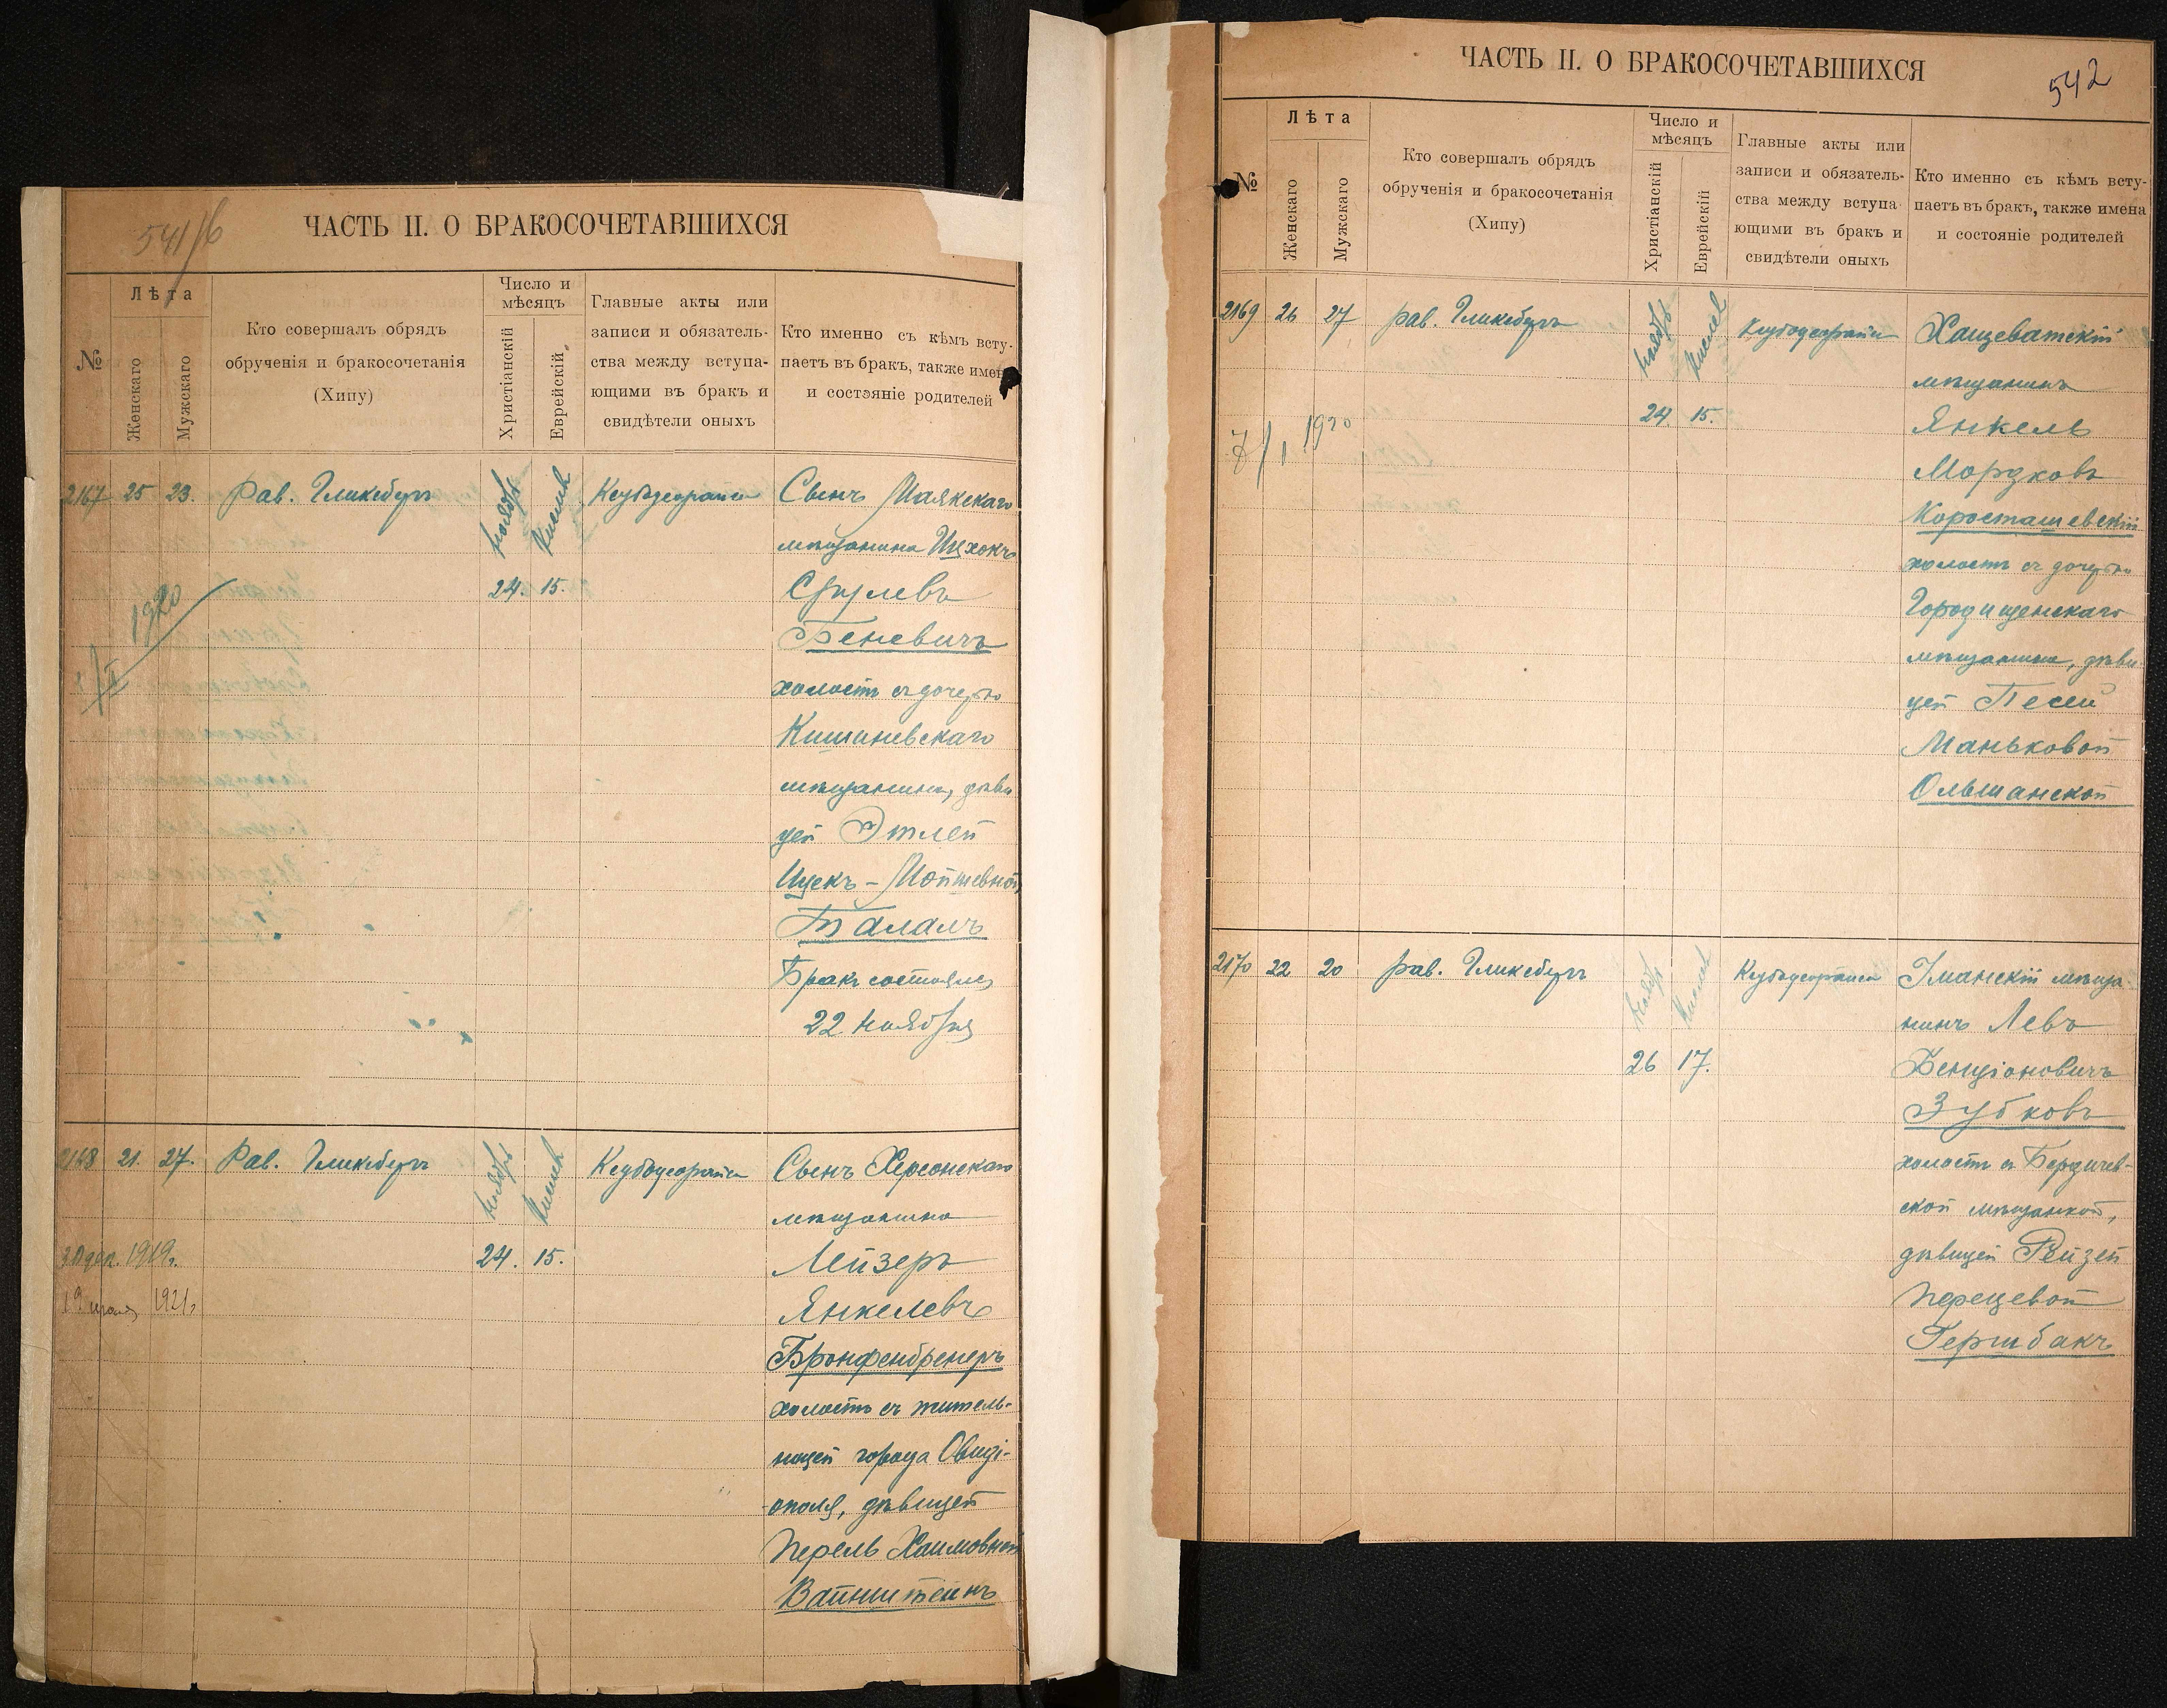 541/6
ЧАСТЬ II. О БРАКОСОЧЕТАВШИХСЯ
№
Лѣта
Женскаго
Мужскаго
Кто совершалъ обрядъ
обрученія и бракосочетанія
(Хипу)
Число и
мѣсяцъ
Христіанскій
Еврейскій
Главные акты или
записи и обязатель-
ства между вступа-
ющими въ бракъ и
свидѣтели оныхъ
Кто именно съ кѣмъ всту-
паетъ въ бракъ, также имена
и состояніе родителей
2167 25 23. Рав. Гликсбергъ Ноябрь Кислевъ Сынъ Маякскаго
мѣщанина Ицхокъ
24. 15. Срулевъ
1920
Беневичъ
холостъ съ дочерью
Кишиневскаго
мѣщанина, дѣви
цей Этлей
Ицекъ-Мойшевной
Талалъ
Бракъ состоялся
22 Ноября
2168 21. 27. Рав. Гликсбергъ Ноябрь Кислевъ Сынъ Херсонскаго
мѣщанина
30 дек. 1919г. 24. 15. Лейзеръ
19 1921г Янкелевъ
Бронфенбренеръ
холостъ съ житель-
ницей города Овиді-
ополя, дѣвицей
Перель Хаимовной
Вайнштейнъ
542
ЧАСТЬ II. О БРАКОСОЧЕТАВШИХСЯ
№
Лѣта
Женскаго
Мужскаго
Кто совершалъ обрядъ
обрученія и бракосочетанія
(Хипу)
Число и
мѣсяцъ
Христіанскій
Еврейскій
Главные акты или
записи и обязатель-
ства между вступа
ющими въ бракъ и
свидѣтели оныхъ
Кто именно съ кѣмъ всту-
паетъ въ бракъ, также имена
и состояніе родителей
2169 26 27 Рав. Гликсбергъ Ноябрь Кислевъ Хащеватскій
мѣщанинъ
24. 15. Янкель
7/I 1920
Мордковъ
Коросташевскій
холостъ съ дочерью
Городищенскаго
мѣщанина, дѣви
цей Песей
Маньковой
Ольшанской
2170 22 20 Рав. Гликсбергъ Ноябрь Кислевъ Уманскій мѣща
нинъ Левъ
26 17. Бенціоновичъ
Зубковъ
холостъ съ Бердичев-
ской мѣщанкой,
дѣвицей Рейзей
Перецевой
Гершбакъ